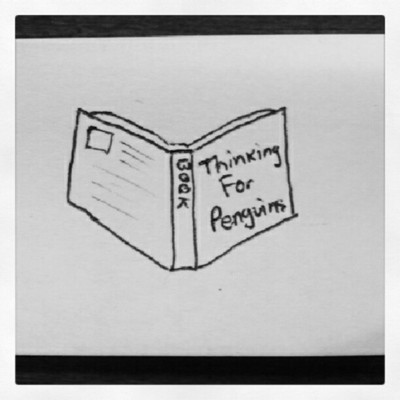 BOOK
Thinking
For
Penguins